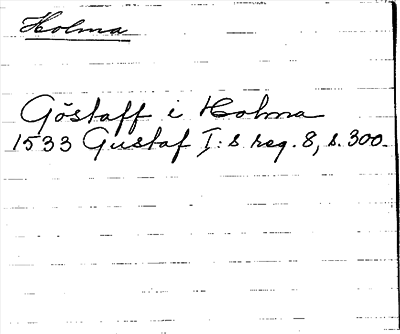 Holma
Göstaff i Holma
1533 Gustaf I:s reg. 8, s. 300.